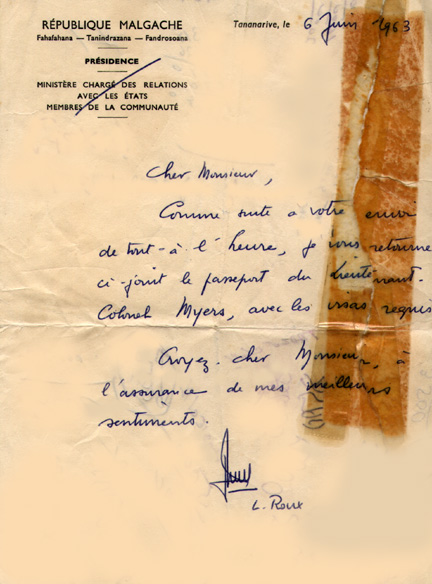 RÉPUBLIQUE MALGACHE
Fahafahana — Tanindrazana — Fandrosoana
PRÉSIDENCE
MINISTÈRE CHARGÉ DES RELATIONS
AVEC LES ÉTATS
MEMBRES DE LA COMMUNAUTÉ
Tananarive, le 6 Juin 1963
Cher Monsieur,
Comme suite a votre envoi
de tout-à l'heure, je vous retourne
ci-joint le passeport du Lieutenant-
Colonel Myers, avec les visas requis
Croyez. cher Monsieur, à
l'assurance de mes meilleurs
sentiments.
L. Roux